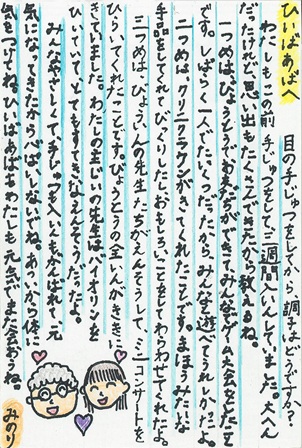 ひいばあばへ
目の手じゅつをしてから調子はどうですか？
わたしもこの前手じゅつをして、三週間入いんしていました。大へん
だったけれど、思い出もたくさんできたから教えるね。
一つめは、びょうとうでお友だちができて、みんなでゲーム大会をしたこと
です。しばらく一人でたいくつだったから、みんなと遊べてうれしかったよ。
二つめは、クリニクラウンがきてくれたことです。まほうみたいな
手品をしてくれてびっくりしたし、おもしろいことをしてわらわせてくれたよ。
三つめは、びょういんの先生たちがえんそうして、ミニコンサートを
ひらいてくれたことです。びょうとうの全いんがききに
きていました。わたしの主じいの先生はバイオリンを
ひいていて、とてもすてきなえんそうだったよ。
みんなやさしくて、手じゅつも入いんもがんばれて、元
気になってきたから心ぱいしないでね。あついから体に
気をつけてね。ひいばあばもわたしも元気でまた会おうね。
みのり